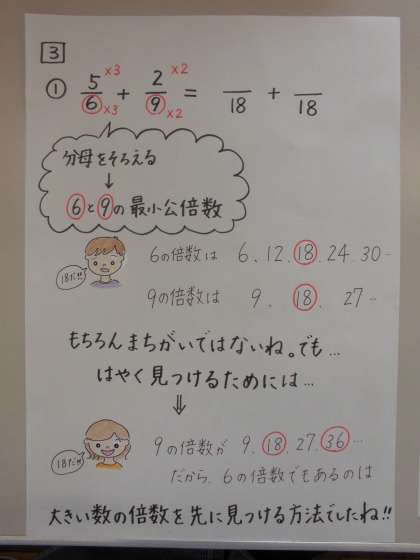 3
① 5/6 ×3 ×3 + 2/9 ×2 ×2 = /18 + /18
分母をそろえる
↓
6と9の最小公倍数
18だ!!
6の倍数は 6、12、18、24、30…
9の倍数は 9、18、27…
もちろんまちがいではないね。でも…
はやく見つけるためには…
⇓
18だ!!
9の倍数が 9、18、27、36…
だから、6の倍数でもあるのは
大きい数の倍数を先に見つける方法でしたね!!